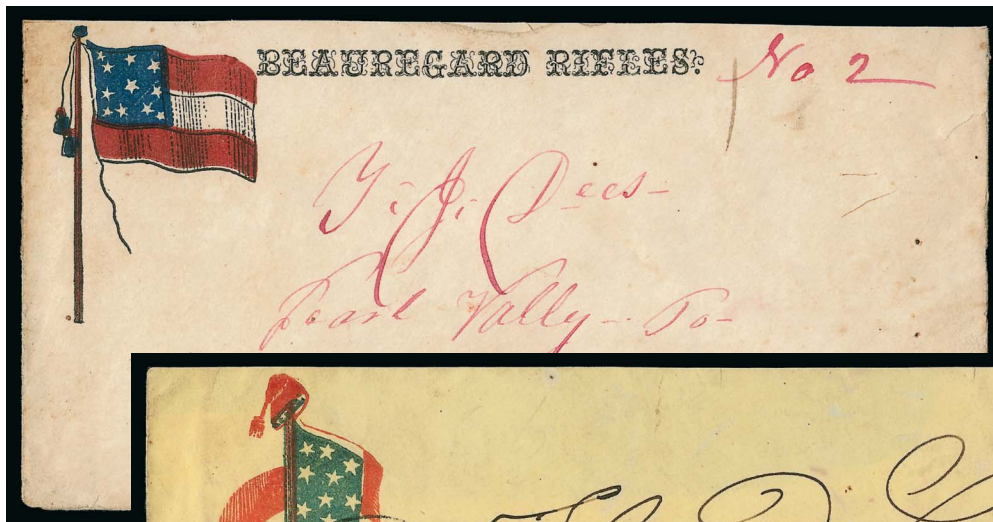 BEAUREGARD RIFLES: No 2
Y. J. Dees-
Pearl Vally- Po-